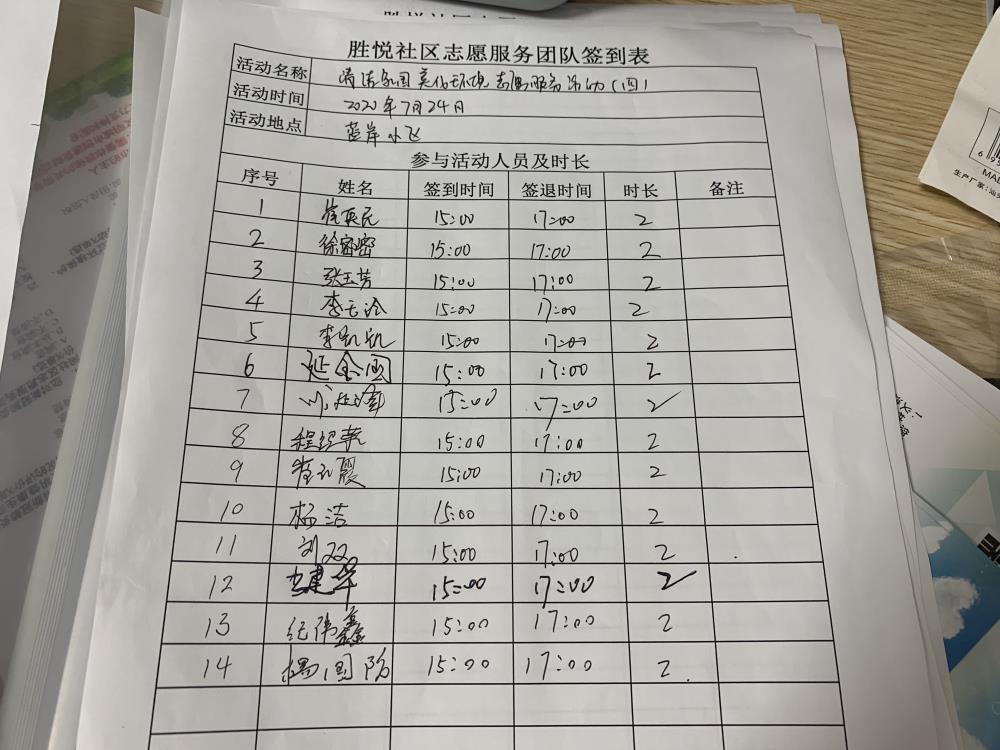 胜悦社区志愿服务团队签到表
活动名称 清洁家园 美化环境 志愿服务活动（四）
活动时间 2020年7月24日
活动地点 蓝岸小飞
参与活动人员及时长
序号 姓名 签到时间 签退时间 时长 备注
1 15:00 17:00 2
2 徐密密 15:00 17:00 2
3 张玉芳 15:00 17:00 2
4 15:00 17:00 2
5 李凯凯 15:00 17:00 2
6 15:00 17:00 2
7 15:00 17:00 2
8 15:00 17:00 2
9 15:00 17:00 2
10 杨洁 15:00 17:00 2
11 刘双 15:00 17:00 2
12 15:00 17:00 2
13 纪伟鑫 15:00 17:00 2
14 杨国防 15:00 17:00 2